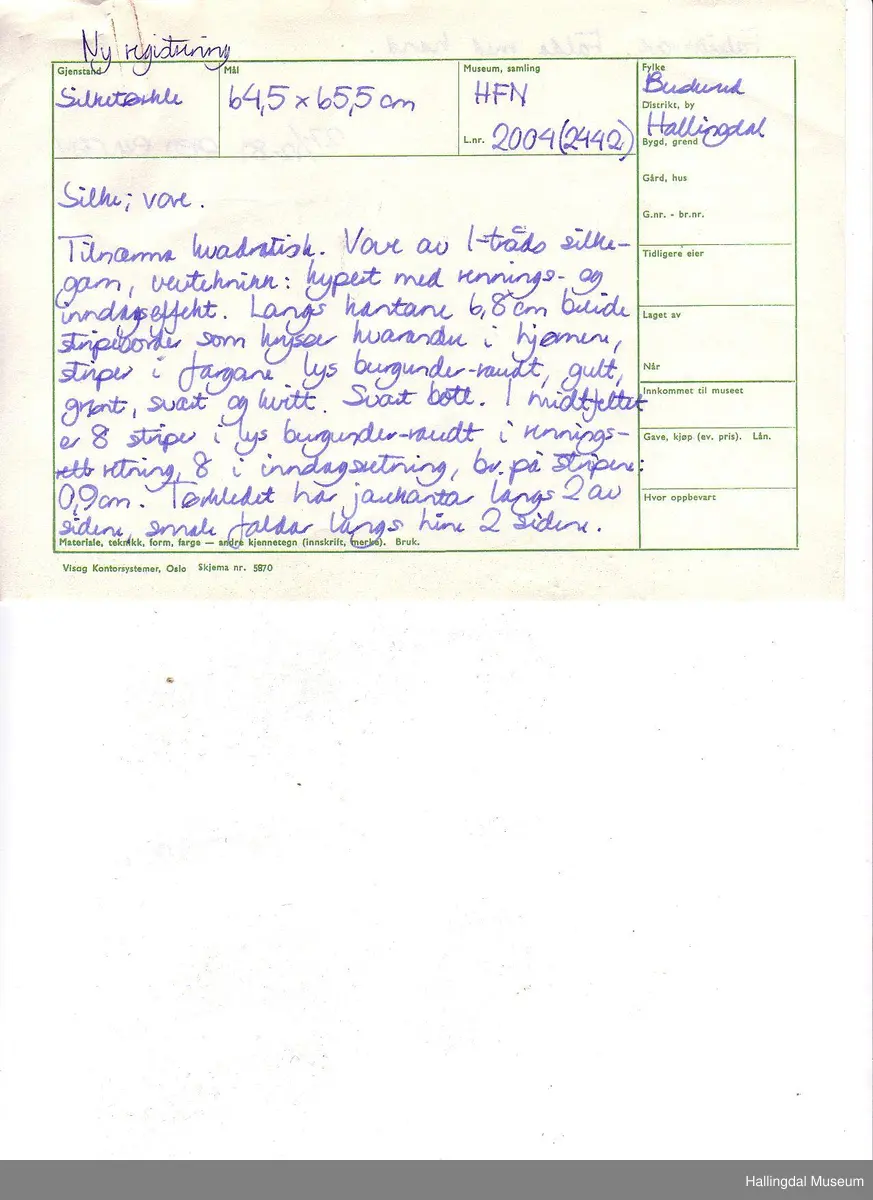 Ny registrering
Gjenstand
Silketørkle
Mål
64,5 x 65,5 cm
Museum, samling
HFN
L.nr. 2004 (2442)
Fylke
Buskerud
Distrikt, by
Hallingdal
Bygd, grend
Gård, hus
G.nr. - br.nr.
Tidligere eier
Laget av
Når
Innkommet til museet
Gave, kjøp (ev. pris). Lån.
Hvor oppbevart
Silke; vove.
Tilnærma kvadratisk. Vove av 1-tråds silke-
garn, vevteknikk: kypert med rennings- og
inndagseffekt. Langs kantane 6,8 cm breide
stripeborder som kryssar kvarandre i hjørnene,
striper i fargane lys burgunder-raudt, gult,
grønt, svart og kvitt. Svart botn. I midtfeltet
er 8 striper i lys burgunder-raudt i rennings-
retning, 8 i inndagsretning, br. på stripene:
0,9 cm. Tørkledet har jarekantar langs 2 av
sidene, smale faldar langs hine 2 sidene.
Materiale, teknikk, form, farge — andre kjennetegn (innskrift, merke). Bruk.
Visag Kontorsystemer, Oslo Skjema nr. 5870
Hallingdal Museum